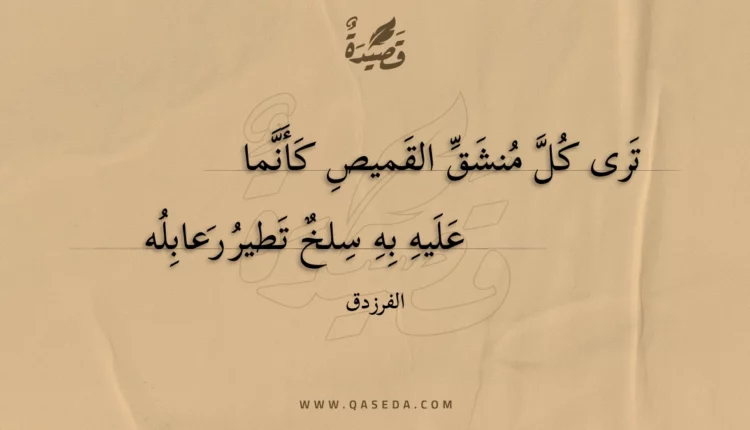 قَصِيْدَةٌ
تَرى كُلَّ مُنشَقِّ القَميصِ كَأَنَّما
عَلَيهِ بِهِ سِلخٌ تَطيرُ رَعابِلُه
الفرزدق
WWW.QASEDA.COM